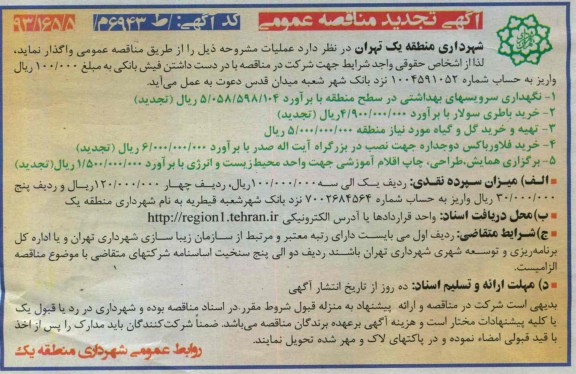 آگهی تجدید مناقصه عمومی
کد آگهی: /ط ۶۹۴۳م/ ۹۳/۱۶۵/۵
شهرداری منطقه یک تهران در نظر دارد عملیات مشروحه ذیل را از طریق مناقصه عمومی واگذار نماید،
لذا از اشخاص حقوقی واجد شرایط جهت شرکت در مناقصه با در دست داشتن فیش بانکی به مبلغ ۱۰۰/۰۰۰ ریال
واریز به حساب شماره ۱۰۰۴۵۹۱۰۵۲ نزد بانک شهر شعبه میدان قدس دعوت به عمل می‌آید.
۱- نگهداری سرویسهای بهداشتی در سطح منطقه با برآورد ۵/۰۵۸/۵۹۸/۱۰۴ ریال (تجدید)
۲- خرید باطری سولار با برآورد ۴/۹۰۰/۰۰۰/۰۰۰ریال (تجدید)
۳- تهیه و خرید گل و گیاه مورد نیاز منطقه ۵/۰۰۰/۰۰۰/۰۰۰ ریال
۴- خرید فلاورباکس دوجداره جهت نصب در بزرگراه آیت اله صدر با برآورد ۶/۰۰۰/۰۰۰/۰۰۰ ریال (تجدید)
۵- برگزاری همایش،طراحی، چاپ اقلام آموزشی جهت واحد محیط زیست و انرژی با برآورد ۱/۵۰۰/۰۰۰/۰۰۰ ریال(تجدید)
الف) میزان سپرده نقدی: ردیف یک الی سه ۱۰۰/۰۰۰/۰۰۰ریال، ردیف چهار ۱۲۰/۰۰۰/۰۰۰ریال و ردیف پنج
۳۰/۰۰۰/۰۰۰ ریال واریز به حساب شماره ۷۰۰۲۶۸۴۵۶۴ نزد بانک شهرشعبه قیطریه به نام شهرداری منطقه یک
ب)محل دریافت اسناد: واحد قراردادها یا آدرس الکترونیکی http://region1.tehran.ir
ج)شرایط متقاضی: ردیف اول می بایست دارای رتبه معتبر و مرتبط از سازمان زیبا سازی شهرداری تهران و یا اداره کل
برنامه‌ریزی و توسعه شهری شهرداری تهران باشند ردیف دو الی پنج سنخیت اساسنامه شرکتهای متقاضی با موضوع مناقصه
الزامیست.
د) مهلت ارائه و تسلیم اسناد: ده روز از تاریخ انتشار آگهی
بدیهی است شرکت در مناقصه و ارائه پیشنهاد به منزله قبول شروط مقرر،در اسناد مناقصه بوده و شهرداری در رد یا قبول یک
یا کلیه پیشنهادات مختار است و هزینه آگهی برعهده برندگان مناقصه می‌باشد. ضمناً شرکت‌کنندگان باید مدارک را پس از اخذ
با قید قبولی امضاء نموده و در پاکتهای لاک و مهر شده تحویل نمایند.
روابط عمومی شهرداری منطقه یک